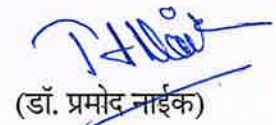 (डॉ. प्रमोद नाईक)